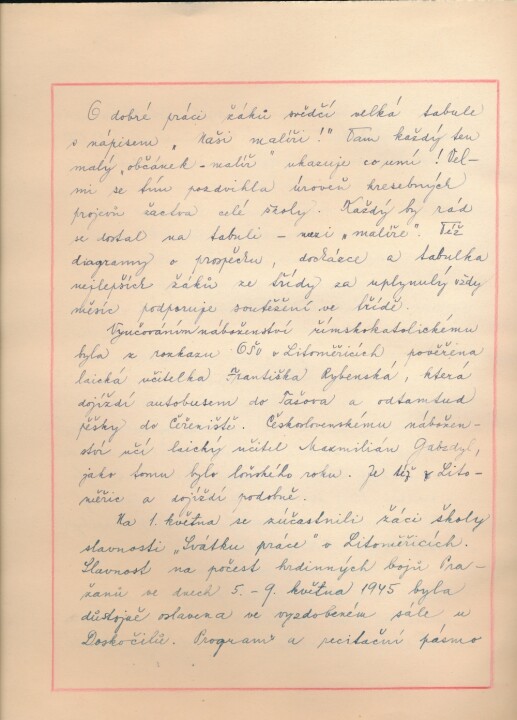 O dobré práci žáků svědčí velká tabule
s nápisem „Naši malíři!" Tam každý ten
malý „občánek-malíř" ukazuje co umí! Vel-
mi se tím pozdvihla úroveň kresebných
projevů žactva celé školy. Každý by rád
se dostal na tabuli - mezi „malíře". Též
diagramy o prospěchu, docházce a tabulka
nejlepších žáků ze třídy za uplynulý vždy
měsíc podporuje soutěžení ve třídě.
Vyučováním náboženství římskokatolickému
byla z rozkazu OŠO v Litoměřicích pověřena
laická učitelka Františka Rybenská, která
dojíždí autobusem do Tašova a odtamtud
pěšky do Čeřeniště. Československému nábožen-
ství učí laický učitel Maxmilián Gabzdyl,
jako tomu bylo loňského roku. Je též z Lito-
měřic a dojíždí podobně.
Na 1. května se zúčastnili žáci školy
slavnosti „Svátku práce" v Litoměřicích.
Slavnost na počest hrdinných bojů Pra-
žanů ve dnech 5. - 9. května 1945 byla
důstojně oslavena ve vyzdobeném sále u
Doskočilů. Program a recitační pásmo